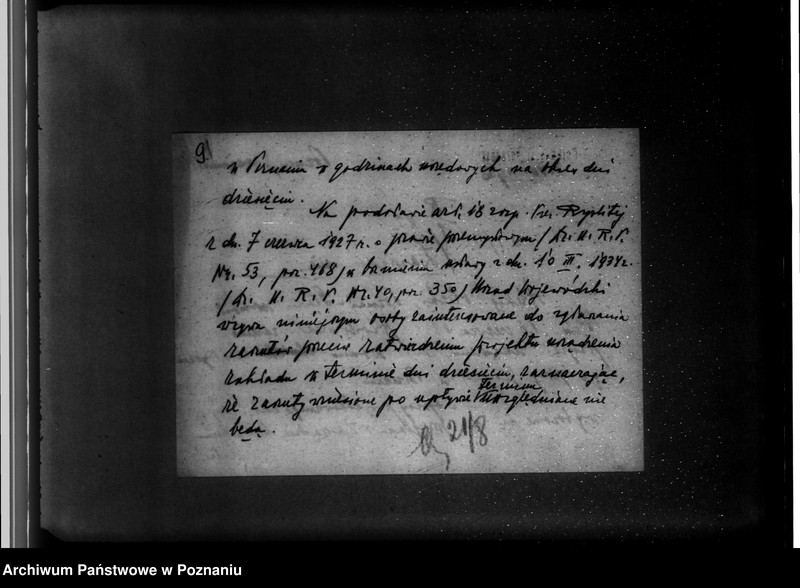 9
w godzinach urzędowych na okres dni
dziesięciu.
Na podstawie art. 18 rozp. Prez. Rzplitej
z dn. 7 czerwca 1927 r. o prawie przemysłowym /Dz. U. R. P.
Nr. 53, poz. 468/ w brzmieniu ustawy z dn. 10 III. 1934 r.
/Dz. U. R. P. Nr. 40, poz. 350/ Urząd Wojewódzki
wzywa niniejszym osoby zainteresowane do zgłaszania
zarzutów przeciw zatwierdzeniu projektu urządzenia
zakładu w terminie dni dziesięciu, zaznaczając,
że zarzuty wniesione po upływie terminu uwzględniane nie
będą.
21/8
Archiwum Państwowe w Poznaniu